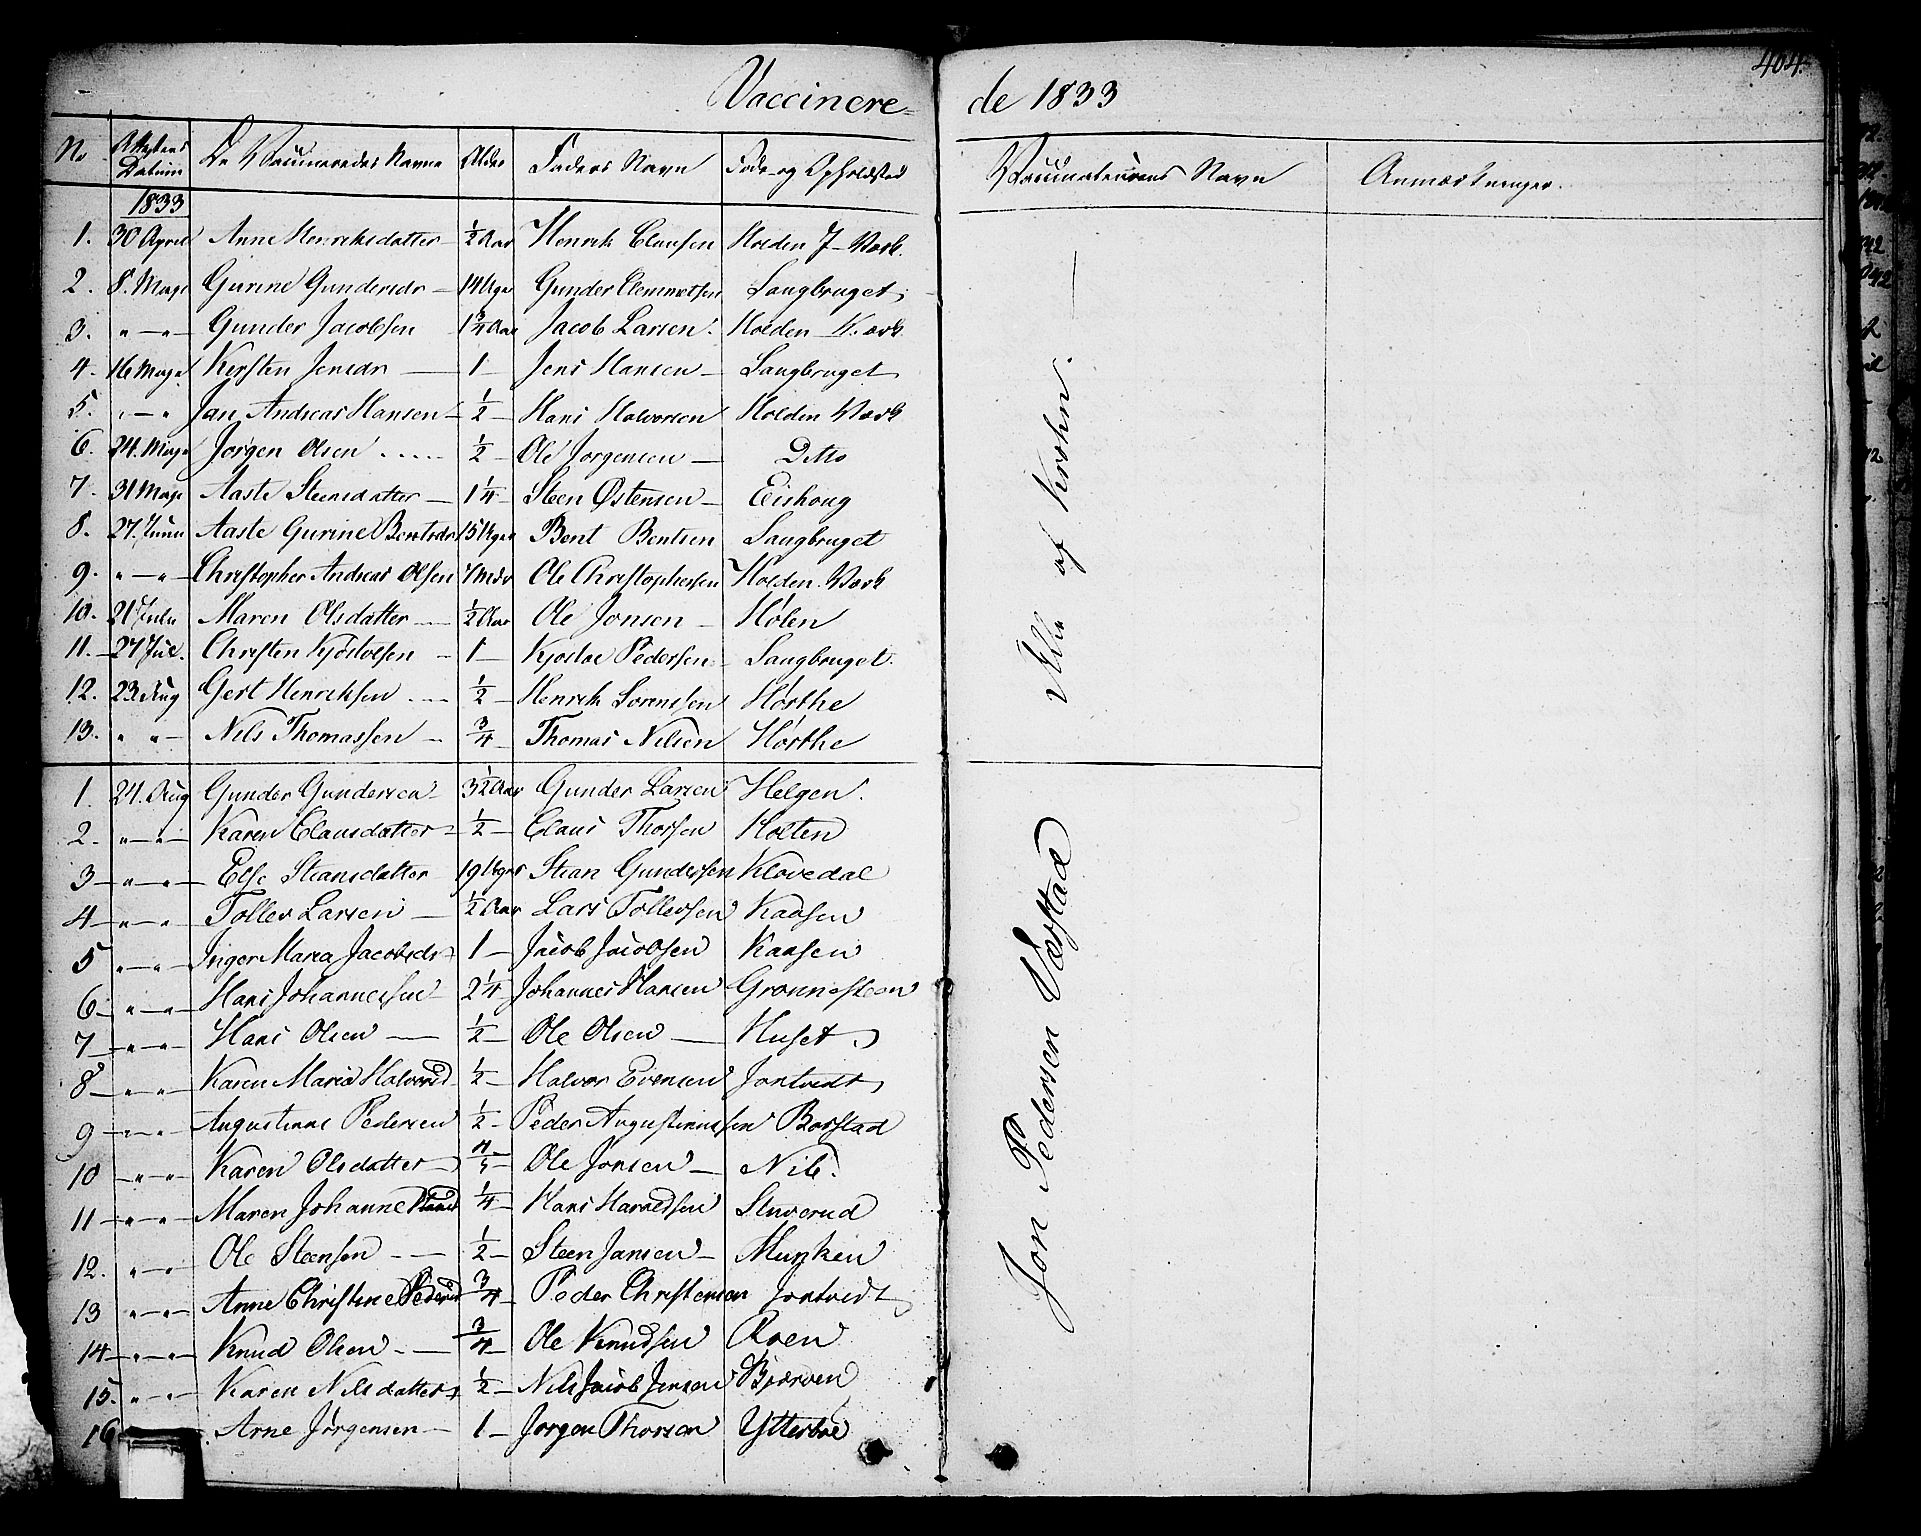 404.
Vaccinere= de 1833
No Attestens Datum De Vaccineredes Navne Alder Faders Navn Føde- og Opholdsted Vaccinateurens Navn Anmærkninger.
1833
1. 30 April Anne Henriksdatter - 1/2 Aar Henrik Clausen Holden J- Værk.
2. 8. Maye Gurine Gundersdr - 14 Uger Gunder Clemmetsen Saugbruget
3. " - " - Gunder Jacobsen 1 3/4 Aar Jacob Larsen. Holden - V. ærk
4. 16 Maye. Kirsten Jensdr - 1 - Jens Hansen - Saugbruget
5. " - " Jan Andreas Hansen - 1/2 - Hans Halvorsen Holden Værk
6. 24. Maye Jørgen Olsen ..... 1/2 - Ole Jørgensen - Ditto
7. 31 Maye Aaste Steensdatter - 1 1/4 - Steen Østensen - Eishoug
8. 27. Junii Aaste Gurine Bentsdr 15 Uger Bent Bentsen Saugbruget
9. " - " - Christopher Andreas Olsen 7 Mdr Ole Christophersen Holden Værk
10. 21 Julii Maren Olsdatter - 1/2 Aar Ole Jonsen - Holen
11. - 27 Jul. Christen Kjøstolsen - 1 - Kjøstol Pedersen - Saugbruget.
12. 23. Aug Gert Henriksen ... 1/2 - Henrik Sorensen Hørthe
13. " " - Nils Thomassen - 3/4 - Thomas Nilsen Hørthe
Alle af Kirken. -
1. 24. Aug Gunder Gundersen - 3 1/2 Aar Gunder Larsen Helgen.
2. " - " - Karen Clausdatter - 1/2 - Claus Thorsen Holten
3 - " - " - Else Steansdatter 19 Uger Stean Gundersen Klovedal
4 - " - " Tollev Larsen - 1/2 Aar Lars Tollevsen Kaasen
5 " - " - Inger Maria Jacobsdr 1 - Jacob Jacobsen Kaasen
6 - " - " - Hans Johannessen - 2 1/4 - Johannes Hansen Gronnesteen
7 - " - " Hans Olsen - 1/2 - Ole Olsen - Huset
8 - " - " Karen Maria Halvorsd 1/2 - Halvor Evensen Jontvedt
9 - " - " Augustinus Pedersen 1/2 - Peder Augustinussen Borstad
10 - " - " - Karen Olsdatter 4/5 - Ole Jonsen - Nile.
11 - " - " Maren Johanne Hansd 1/4 - Hans Harvedsen Stuverud
12. " - " Ole Steensen - - 1/2 - Steen Jansen - Munken
13 " - " - Anne Christine Pedersd 3/4 - Peder Christensen Jontvedt
14 - " - " - Knud Olsen - - 3/4 - Ole Knudsen Roen
15. " - " - Karen Nilsdatter 1/2 - Nils Jacob Jensen Bjerven
16 Arne Jørgensen - 1 - Jorgen Thorsen Ytterboe
Jon Pedersen Værstad